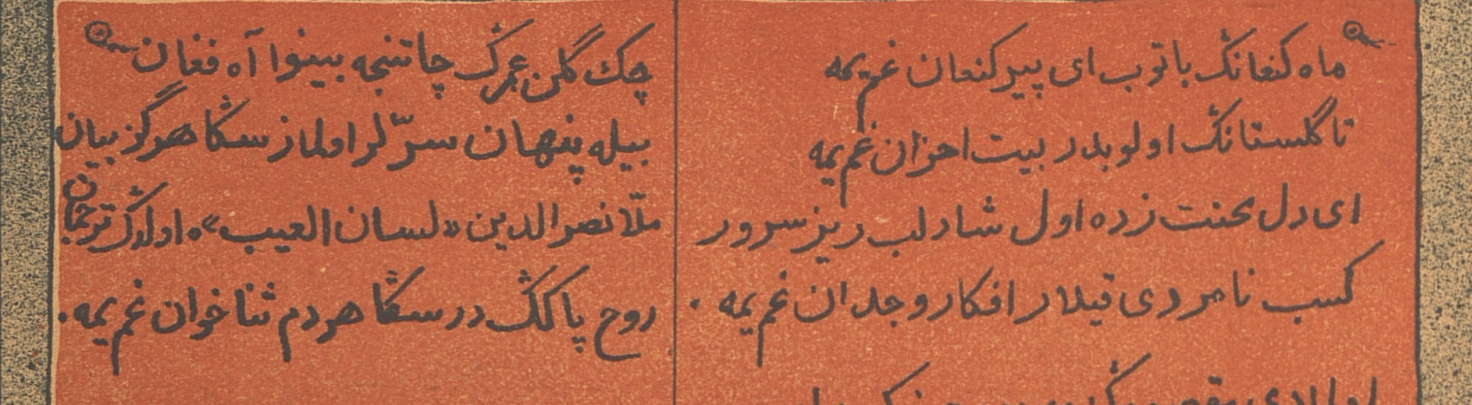 ماه کنعانڭ باتوب ای پیر کنعان غم یمه
تا گلستانڭ اولوبدر بیت احزان غم یمه
ای دل محنت زده اول شاد لب ریز سرور
کسب نامردی قیلار افکار وجدان غم یمه .
چک گلن عمرڭ چاتنجه بینوا آه فغان
بیله پنهان سرّلر اولماز سڭا هرگز بیان
ملّا نصر الدین «لسان الغیب»ه اولدڭ ترجمان
روح پاکڭ در سڭا هردم ثنا خوان غم یمه .